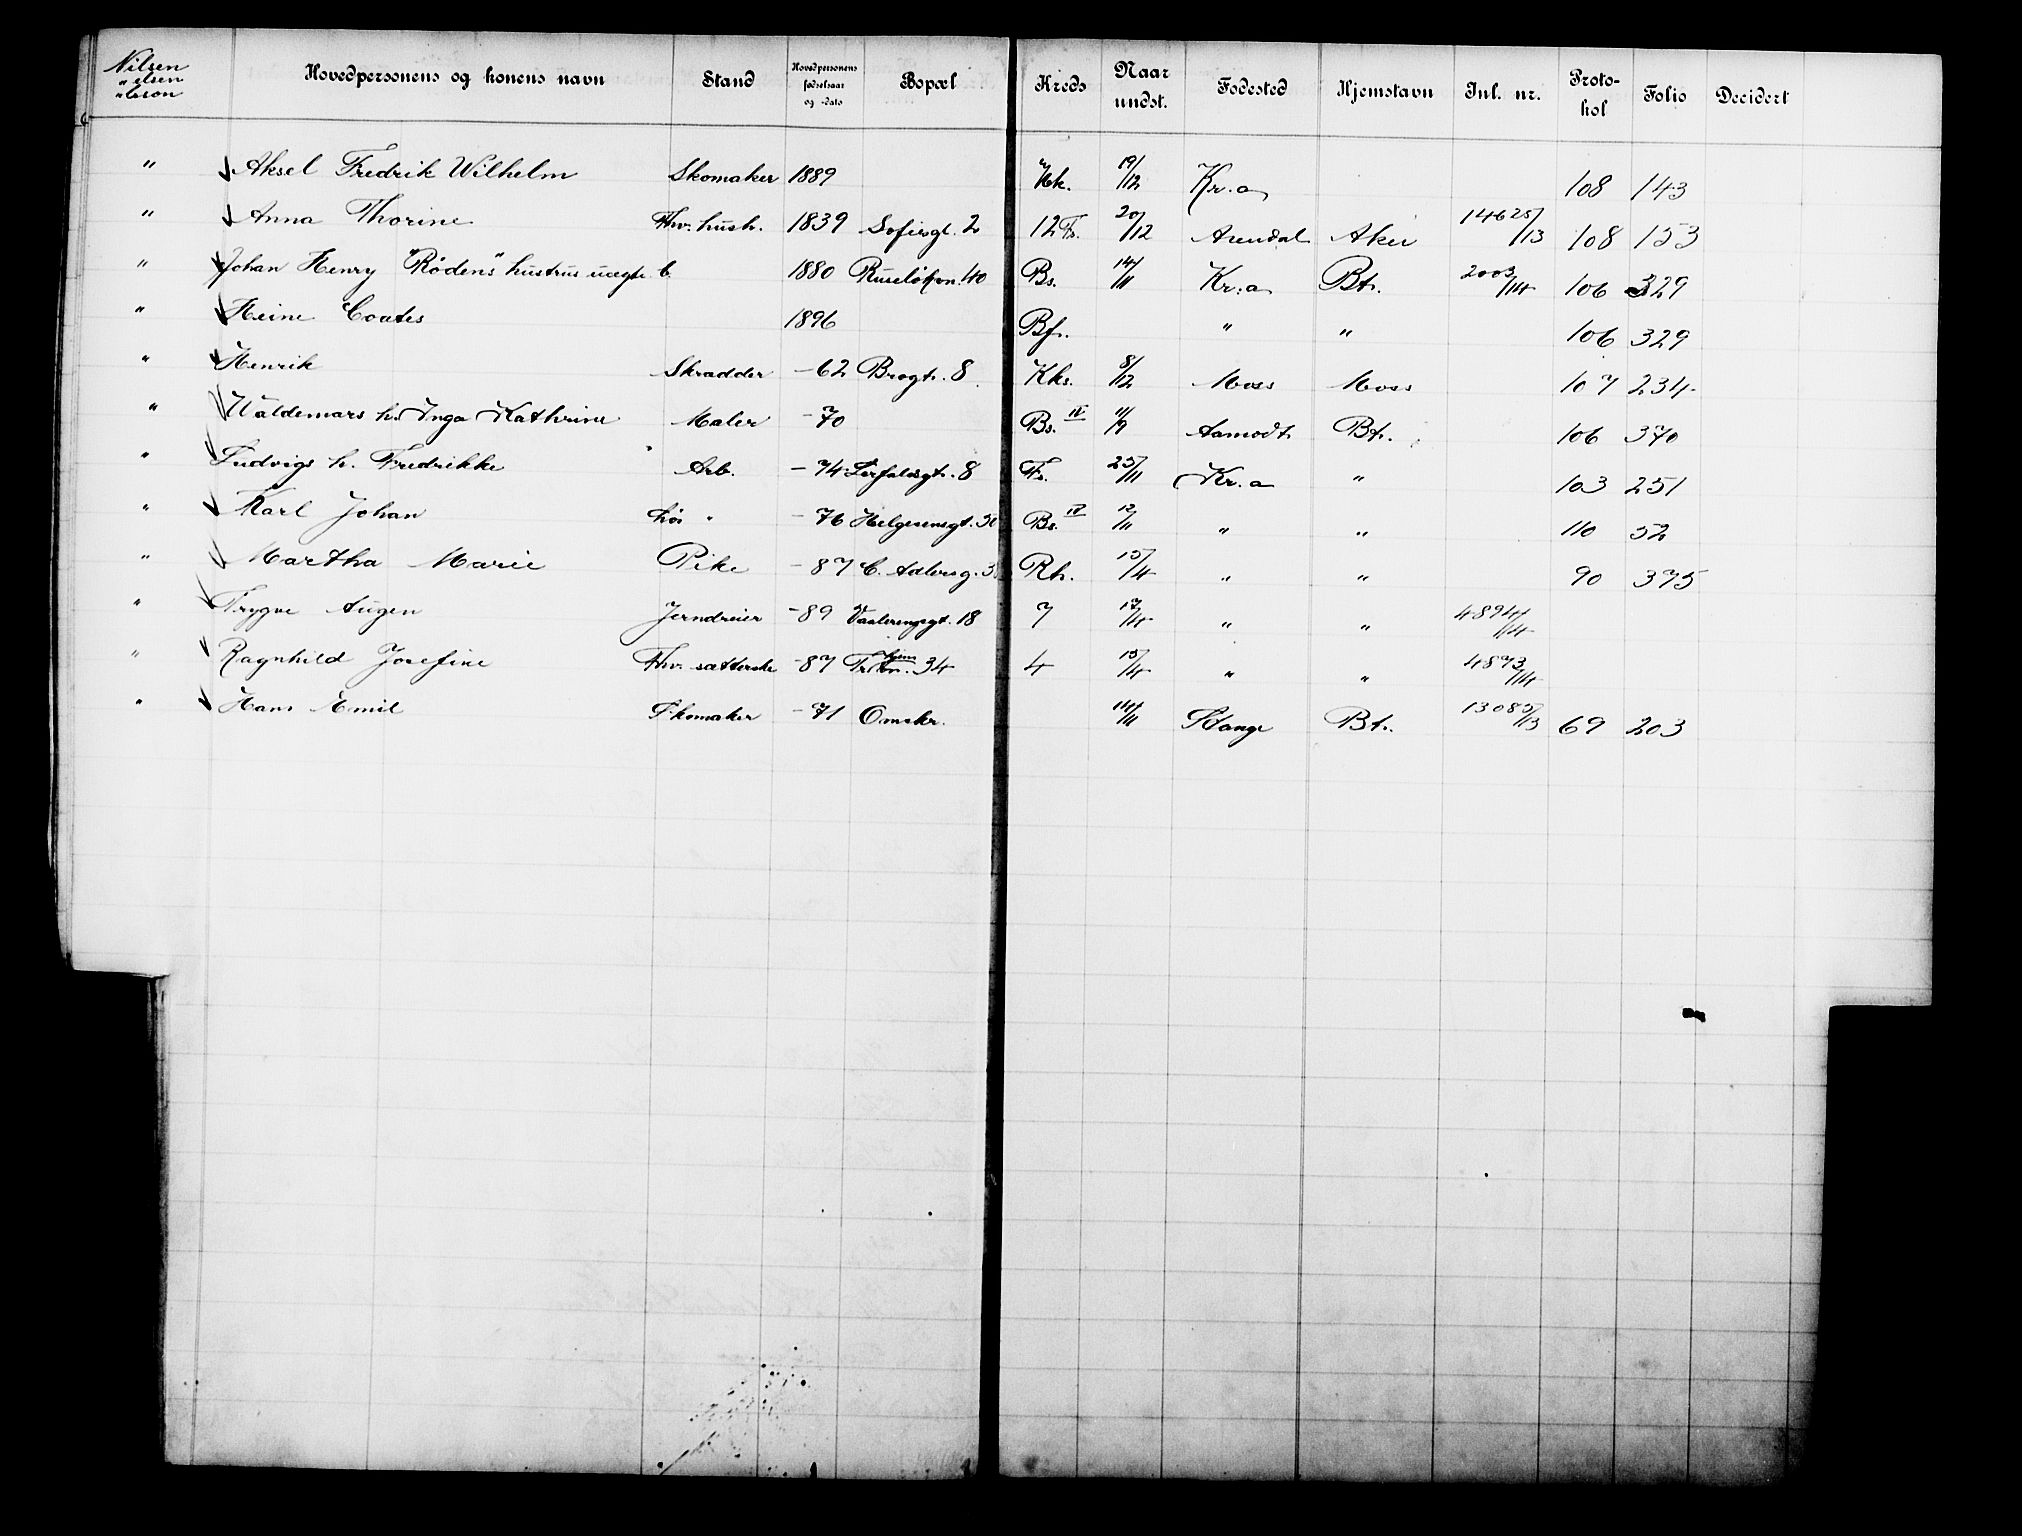 Nilsen " elsen " lsson Hovedpersonens og konens navn Stand Hovedpersonens fødselsaar og -dato Bopæl Kreds Naar undst. Fødested Hjemstavn Inl. nr. Protokol Folio Decidert
" Aksel Fredrik Wilhelm Skomaker 1889 19/12 Kr.a 108 143
" Anna Thorine Fhv. hush. 1839 Sofiesgt. 2 12 Fs. 20/12 Arendal Aker 14625/13 108 153
" Johan Henry "Rödens" hustrus uægte b. 1880 Ruseløkvn. 40 Bs. 14/11 Kr.a Bt. 2003/14 106 329
" Heine Coates 1896 Bf. " " 106 329
" Henrik Skrædder -62 Brogt. 8 Kks. 8/12 Moss Moss 107 234
" Waldemars h. Inga Kathrine Maler -70 Bs. IV 11/9 Aamodt Bt. 106 370
" Ludvigs h. Fredrikke Arb. -74 Lerfaldsgt. 8 Fs. 25/11 Kr.a " 103 251
" Karl Johan Løs " -76 Helgesensgt. Bs. IV 12/11 " " 110 52
" Martha Marie Pike -87 C. Adlersg. Rh. 15/4 " " 90 375
" Trygve Augen Jerndreier -89 Vaalerengsgt. 18 7 17/4 " " 4894/14
" Ragnhild Josefine Fhv. sætterske -87 34 4 15/4 " " 4873/14
" Hans Emil Skomaker -71 Omskr. 14/11 Stange Bt. 13085/13 69 203